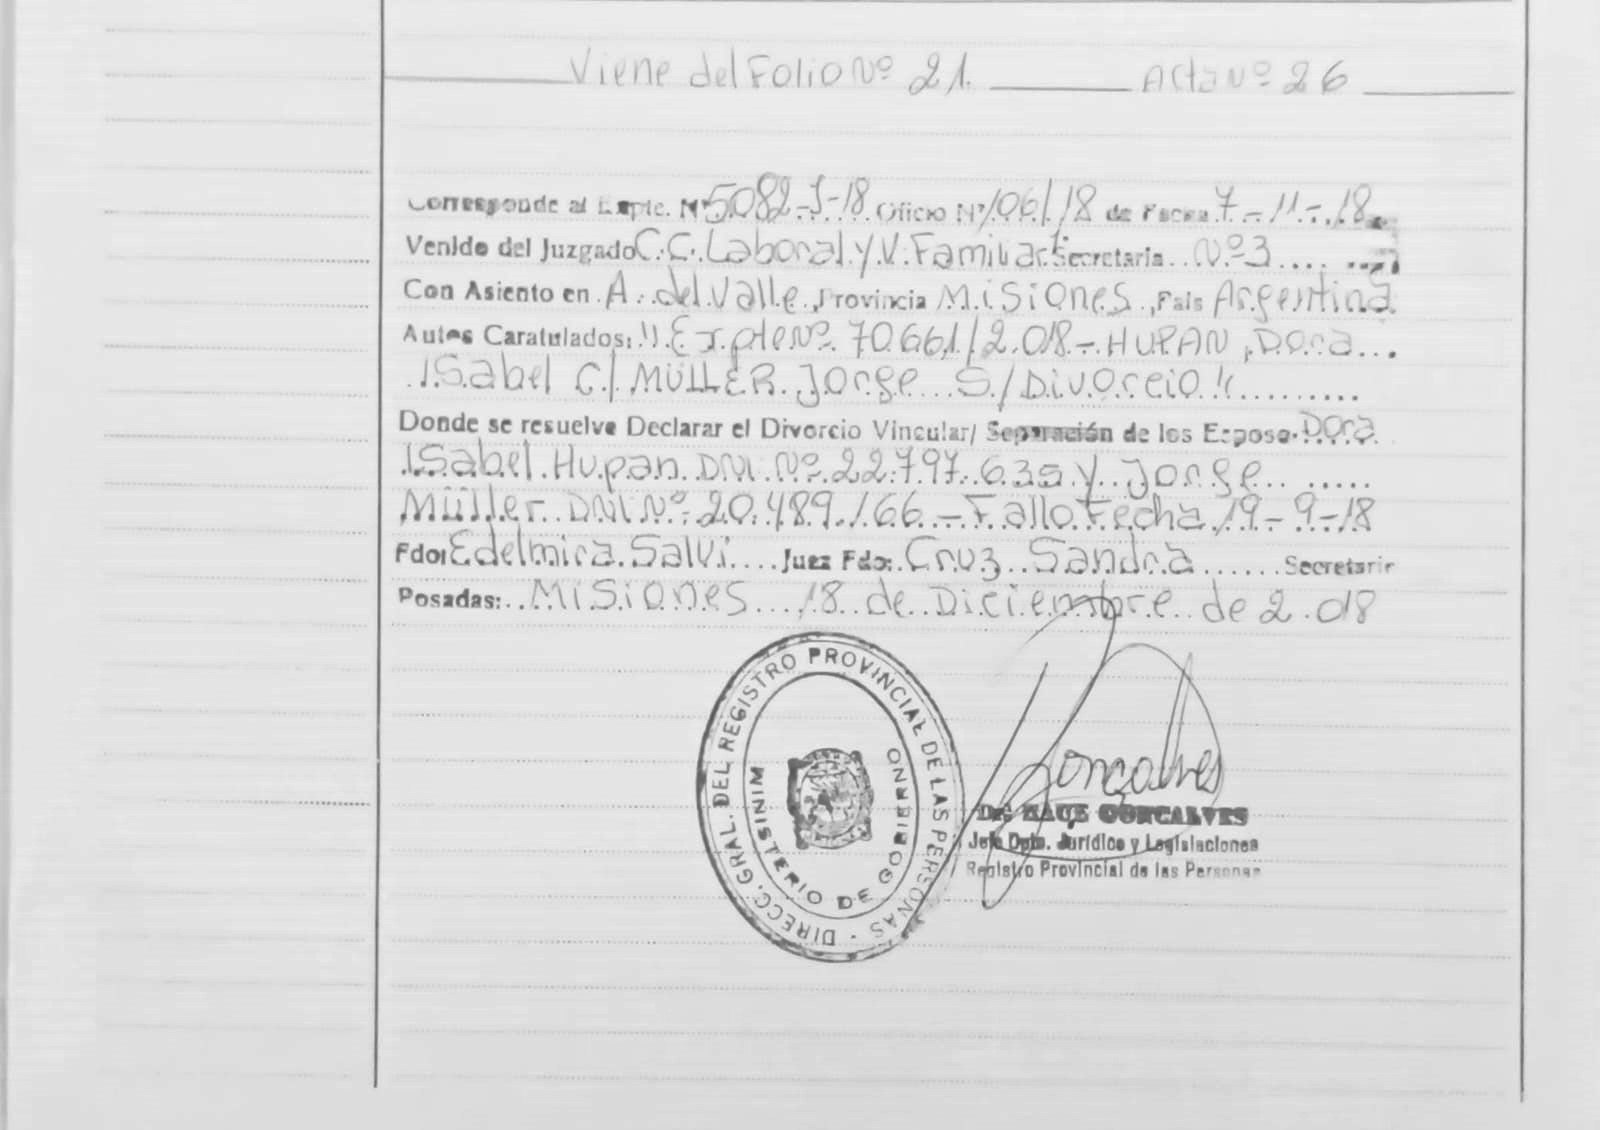 Viene del Folio Nº 21. Acta Nº 26
Corresponde al Expte. Nº 5082-J-18 Oficio Nº 1061/18 de Fecha 7-11-18
Venido del Juzgado C.C. Laboral y V. Familiar Secretaria Nº 3
Con Asiento en A. del Valle, Provincia Misiones, Pais Argentina
Autos Caratulados: "Expte Nº 70661/2.018- HUPAN, Dora
Isabel C/ MÜLLER Jorge S/ Divorcio"
Donde se resuelve Declarar el Divorcio Vincular/ Separación de los Esposo Dora
Isabel Hupan DNI Nº 22.797.635 y Jorge
Müller DNI Nº 20.489.166 - Fallo Fecha 19-9-18
Fdo: Edelmira Salvi Juez Fdo: Cruz Sandra Secretaria
Posadas: Misiones 18 de Diciembre de 2.018
DIRECC. GRAL. DEL REGISTRO PROVINCIAL DE LAS PERSONAS
MINISTERIO DE GOBIERNO
Goncalves
Dr. GONCALVES
Jefe Dpto. Jurídico y Legislaciones
Registro Provincial de las Personas